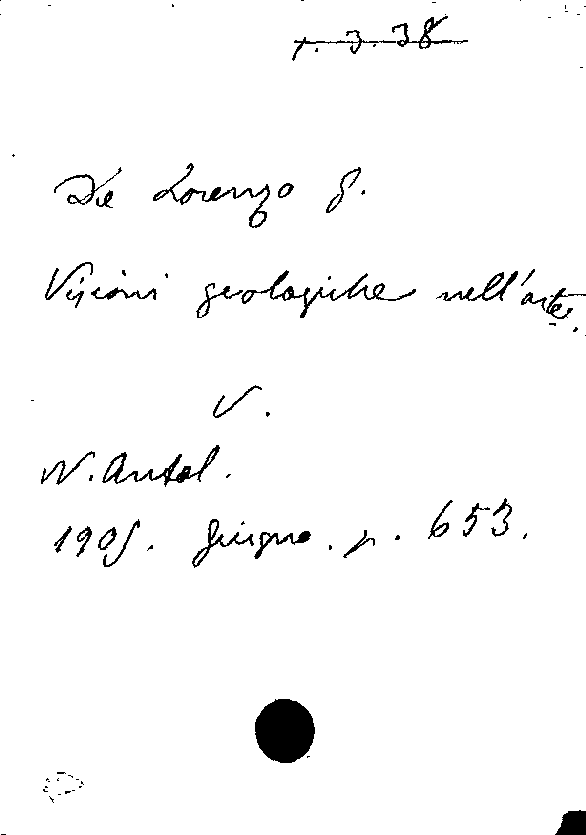 1. 3. 38
De Lorenzo G.
Visioni geologiche nell'arte.
V.
N. Antol.
1905. Giugno. p. 653.